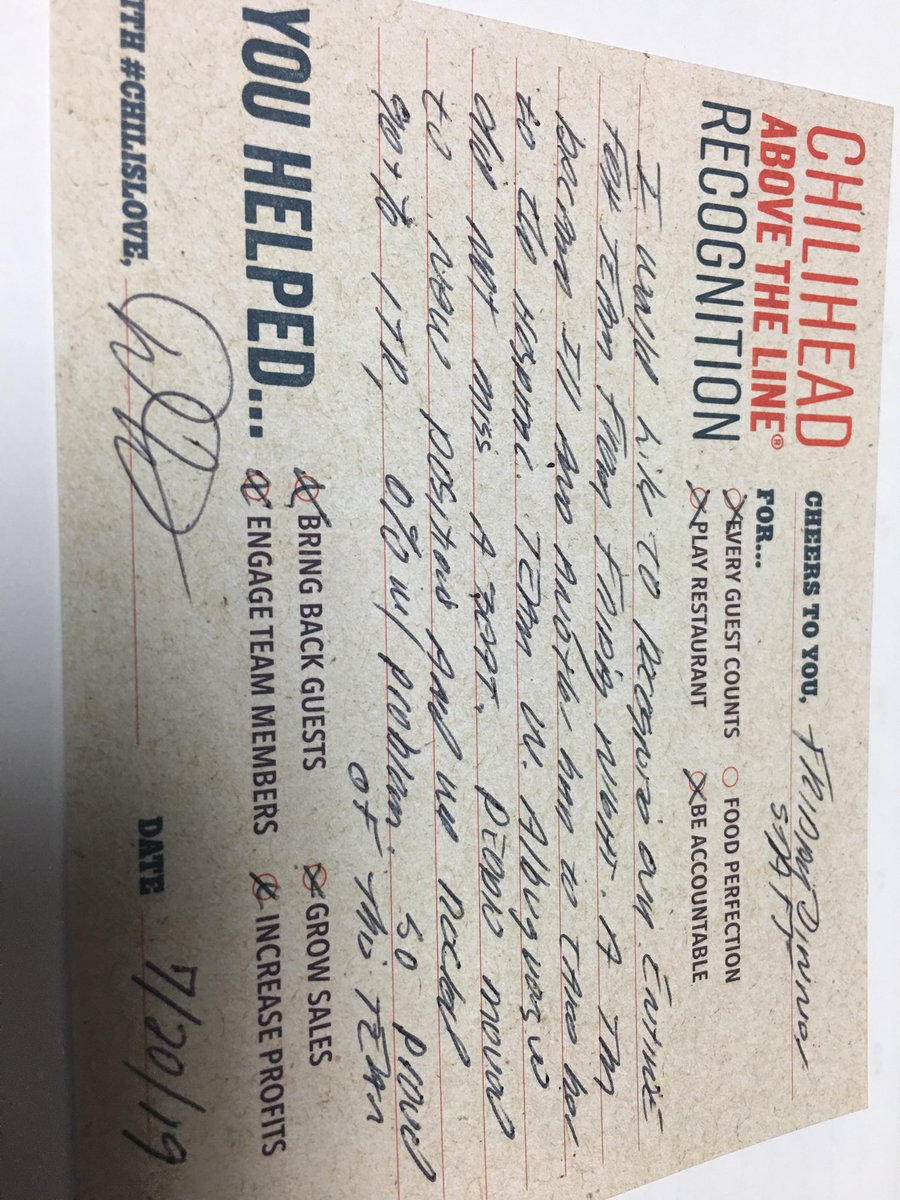 CHILIHEAD
ABOVE THE LINE®
RECOGNITION
CHEERS TO YOU, Friday Dinner
Staff
FOR...
EVERY GUEST COUNTS
FOOD PERFECTION
PLAY RESTAURANT
BE ACCOUNTABLE
I would like to recognize our Entire
Team From Friday Night. A TM
became Ill and another had to take her
to the Hospital. Team in Albuquerque
did not miss a Beat. People moved
to new positions and we rocked
9 or + B ITR, 0% w/ problem. So Proud
of this TEAM
YOU HELPED...
BRING BACK GUESTS
GROW SALES
ENGAGE TEAM MEMBERS
INCREASE PROFITS
ITH #CHILISLOVE,
DATE 7/20/19